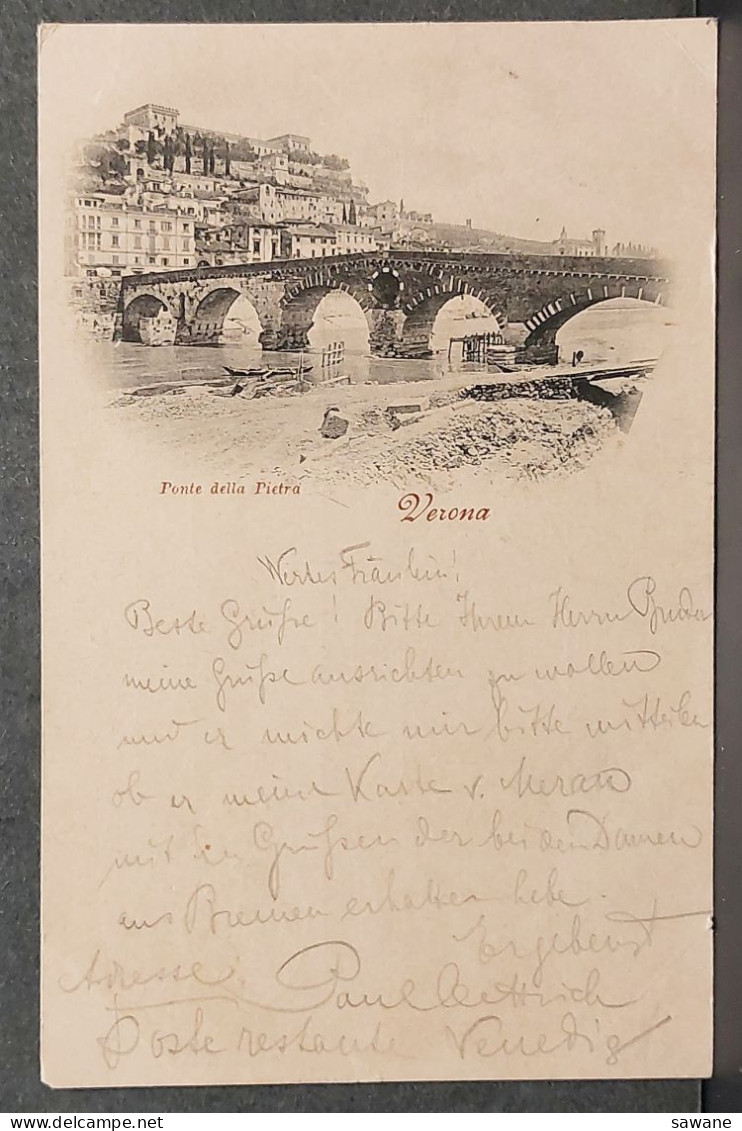 Ponte della Pietra
Verona
Wertes Fräulein!
Beste Grüße! Bitte Ihrem Herrn Bruder
meine Grüße ausrichten zu wollen
und er möchte mir bitte mitteilen
ob er meine Karte v. Meran
mit den Grüßen der beiden Damen
aus Bremen erhalten habe.
Ergebenst
Adresse: Paul
Poste restante Venedig
sawane
Delcampe.net